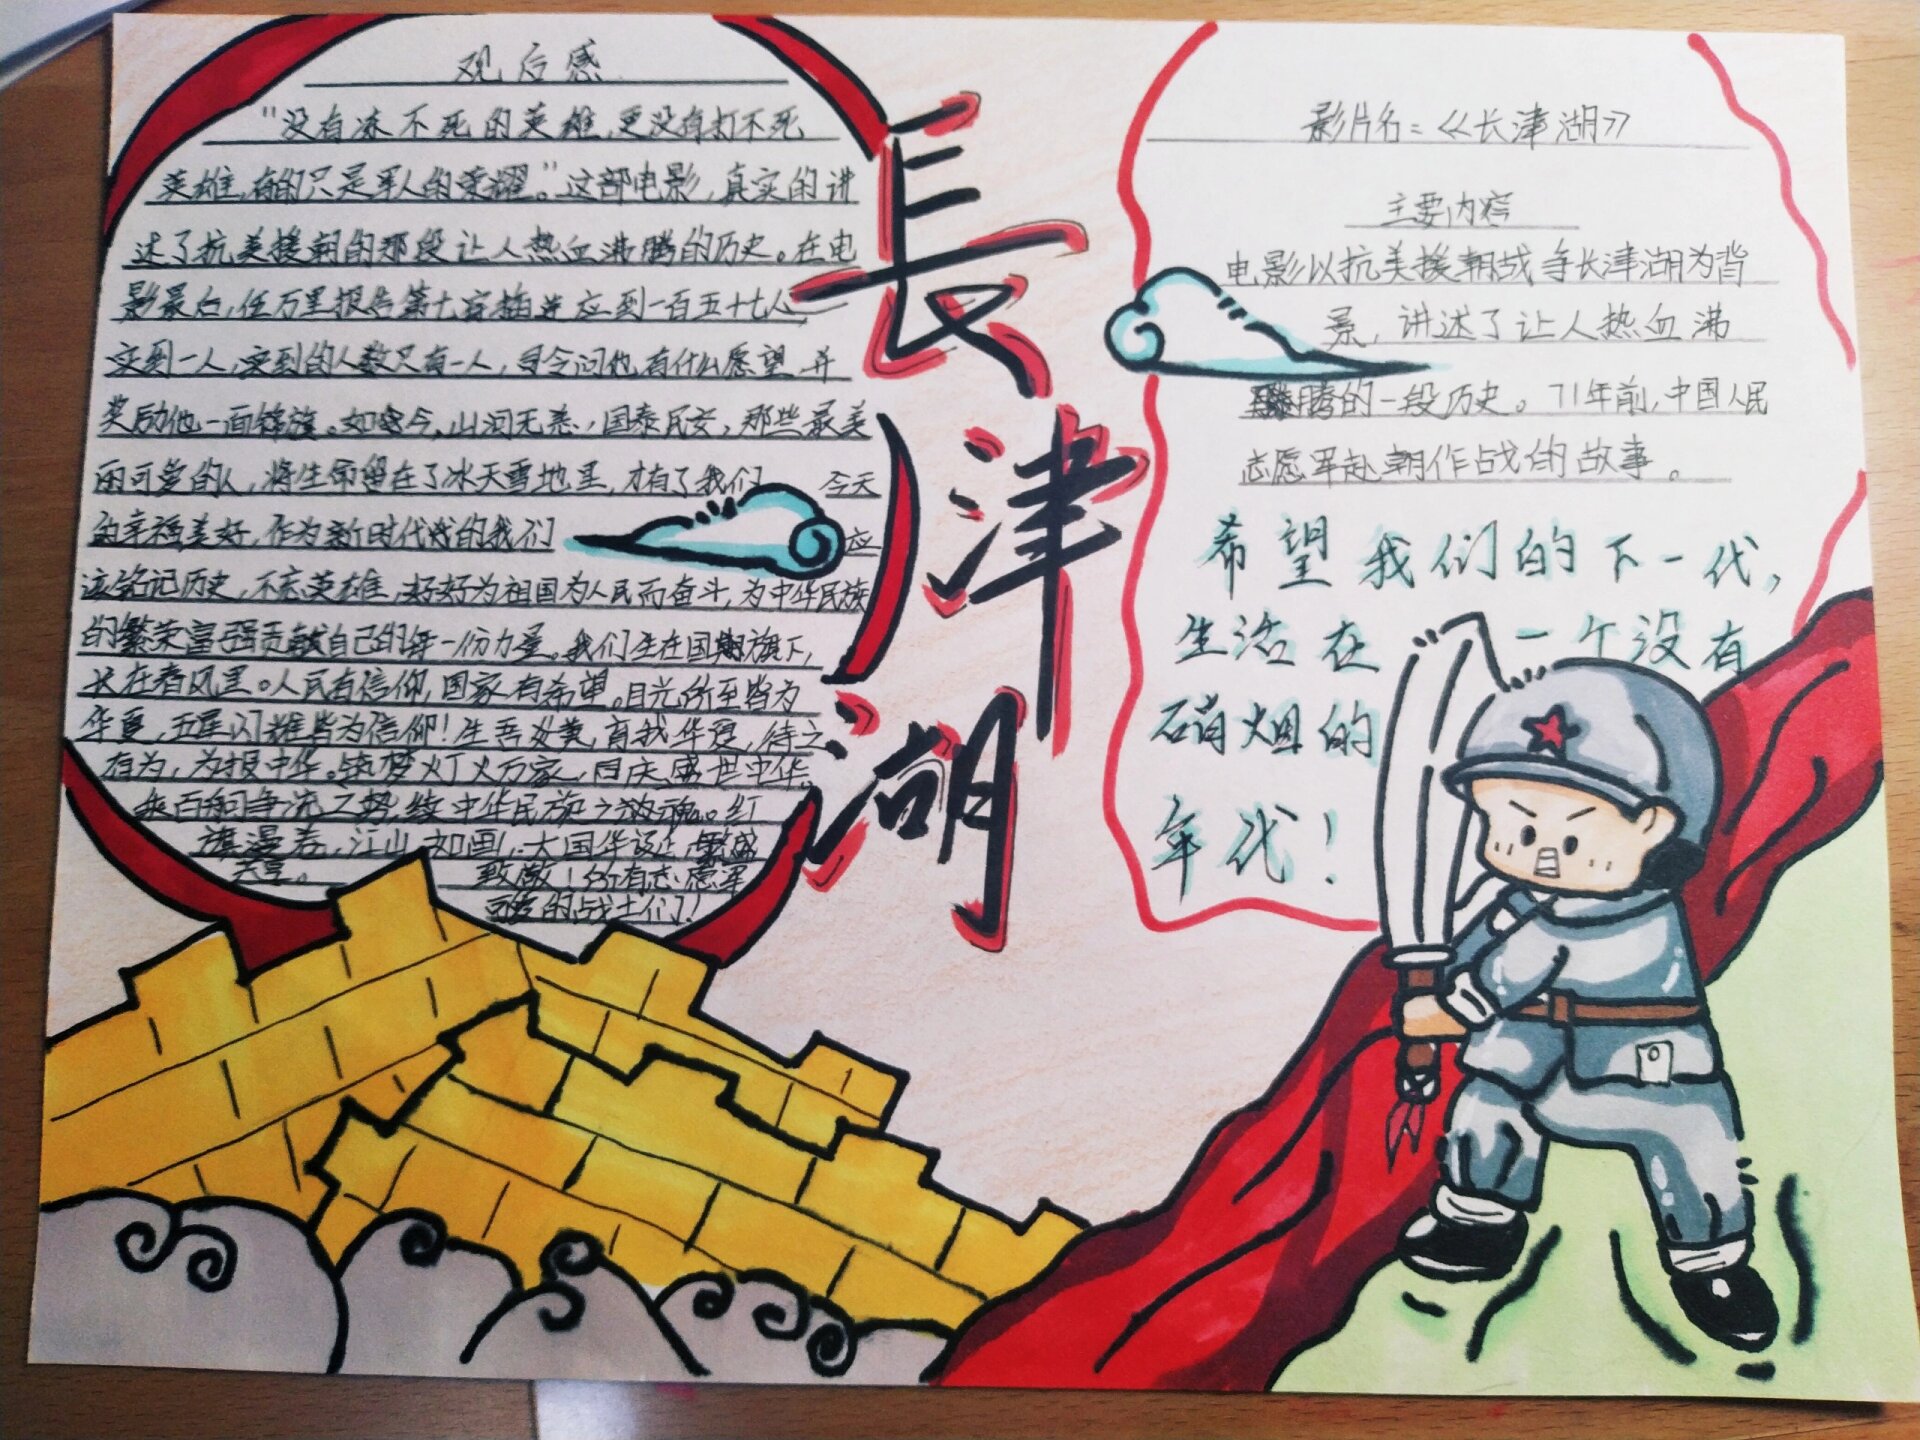 观后感
"没有冻不死的英雄,更没有打不死
英雄,有的只是军人的荣耀。"这部电影,真实的讲
述了抗美援朝的那段让人热血沸腾的历史。在电
影最后,伍万里报告第七穿插连应到一百五十七人
实到一人,实到的人数只有一人,司令问他有什么愿望,并
奖励他一面锦旗。如今,山河无恙,国泰民安,那些最美
而可爱的人,将生命留在了冰天雪地里,才有了我们 今天
的幸福美好,作为新时代的我们 应
该铭记历史,不忘英雄,好好为祖国为人民而奋斗,为中华民族
的繁荣富强贡献自己的每一份力量。我们生在国旗下,
长在春风里。人民有信仰,国家有希望。目光所至皆为
华夏,五星闪耀皆为信仰!生吾炎黄,育我华夏,待之
有为,为报中华。筑梦灯火万家,同庆盛世中华。
乘百舸争流之势,续中华民族之魂。红
旗漫卷,江山如画,大国华诞,繁盛
共享。 致敬!所有志愿军
的战士们!
長津湖
影片名:《长津湖》
主要内容
电影以抗美援朝战争长津湖为背
景,讲述了让人热血沸
腾的一段历史。71年前,中国人民
志愿军赴朝作战的故事。
希望我们的下一代,
生活在一个没有
硝烟的
年代!